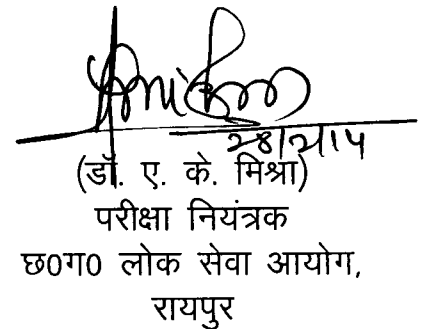 28/2/14
(डॉ. ए. के. मिश्रा)
परीक्षा नियंत्रक
छ0ग0 लोक सेवा आयोग,
रायपुर